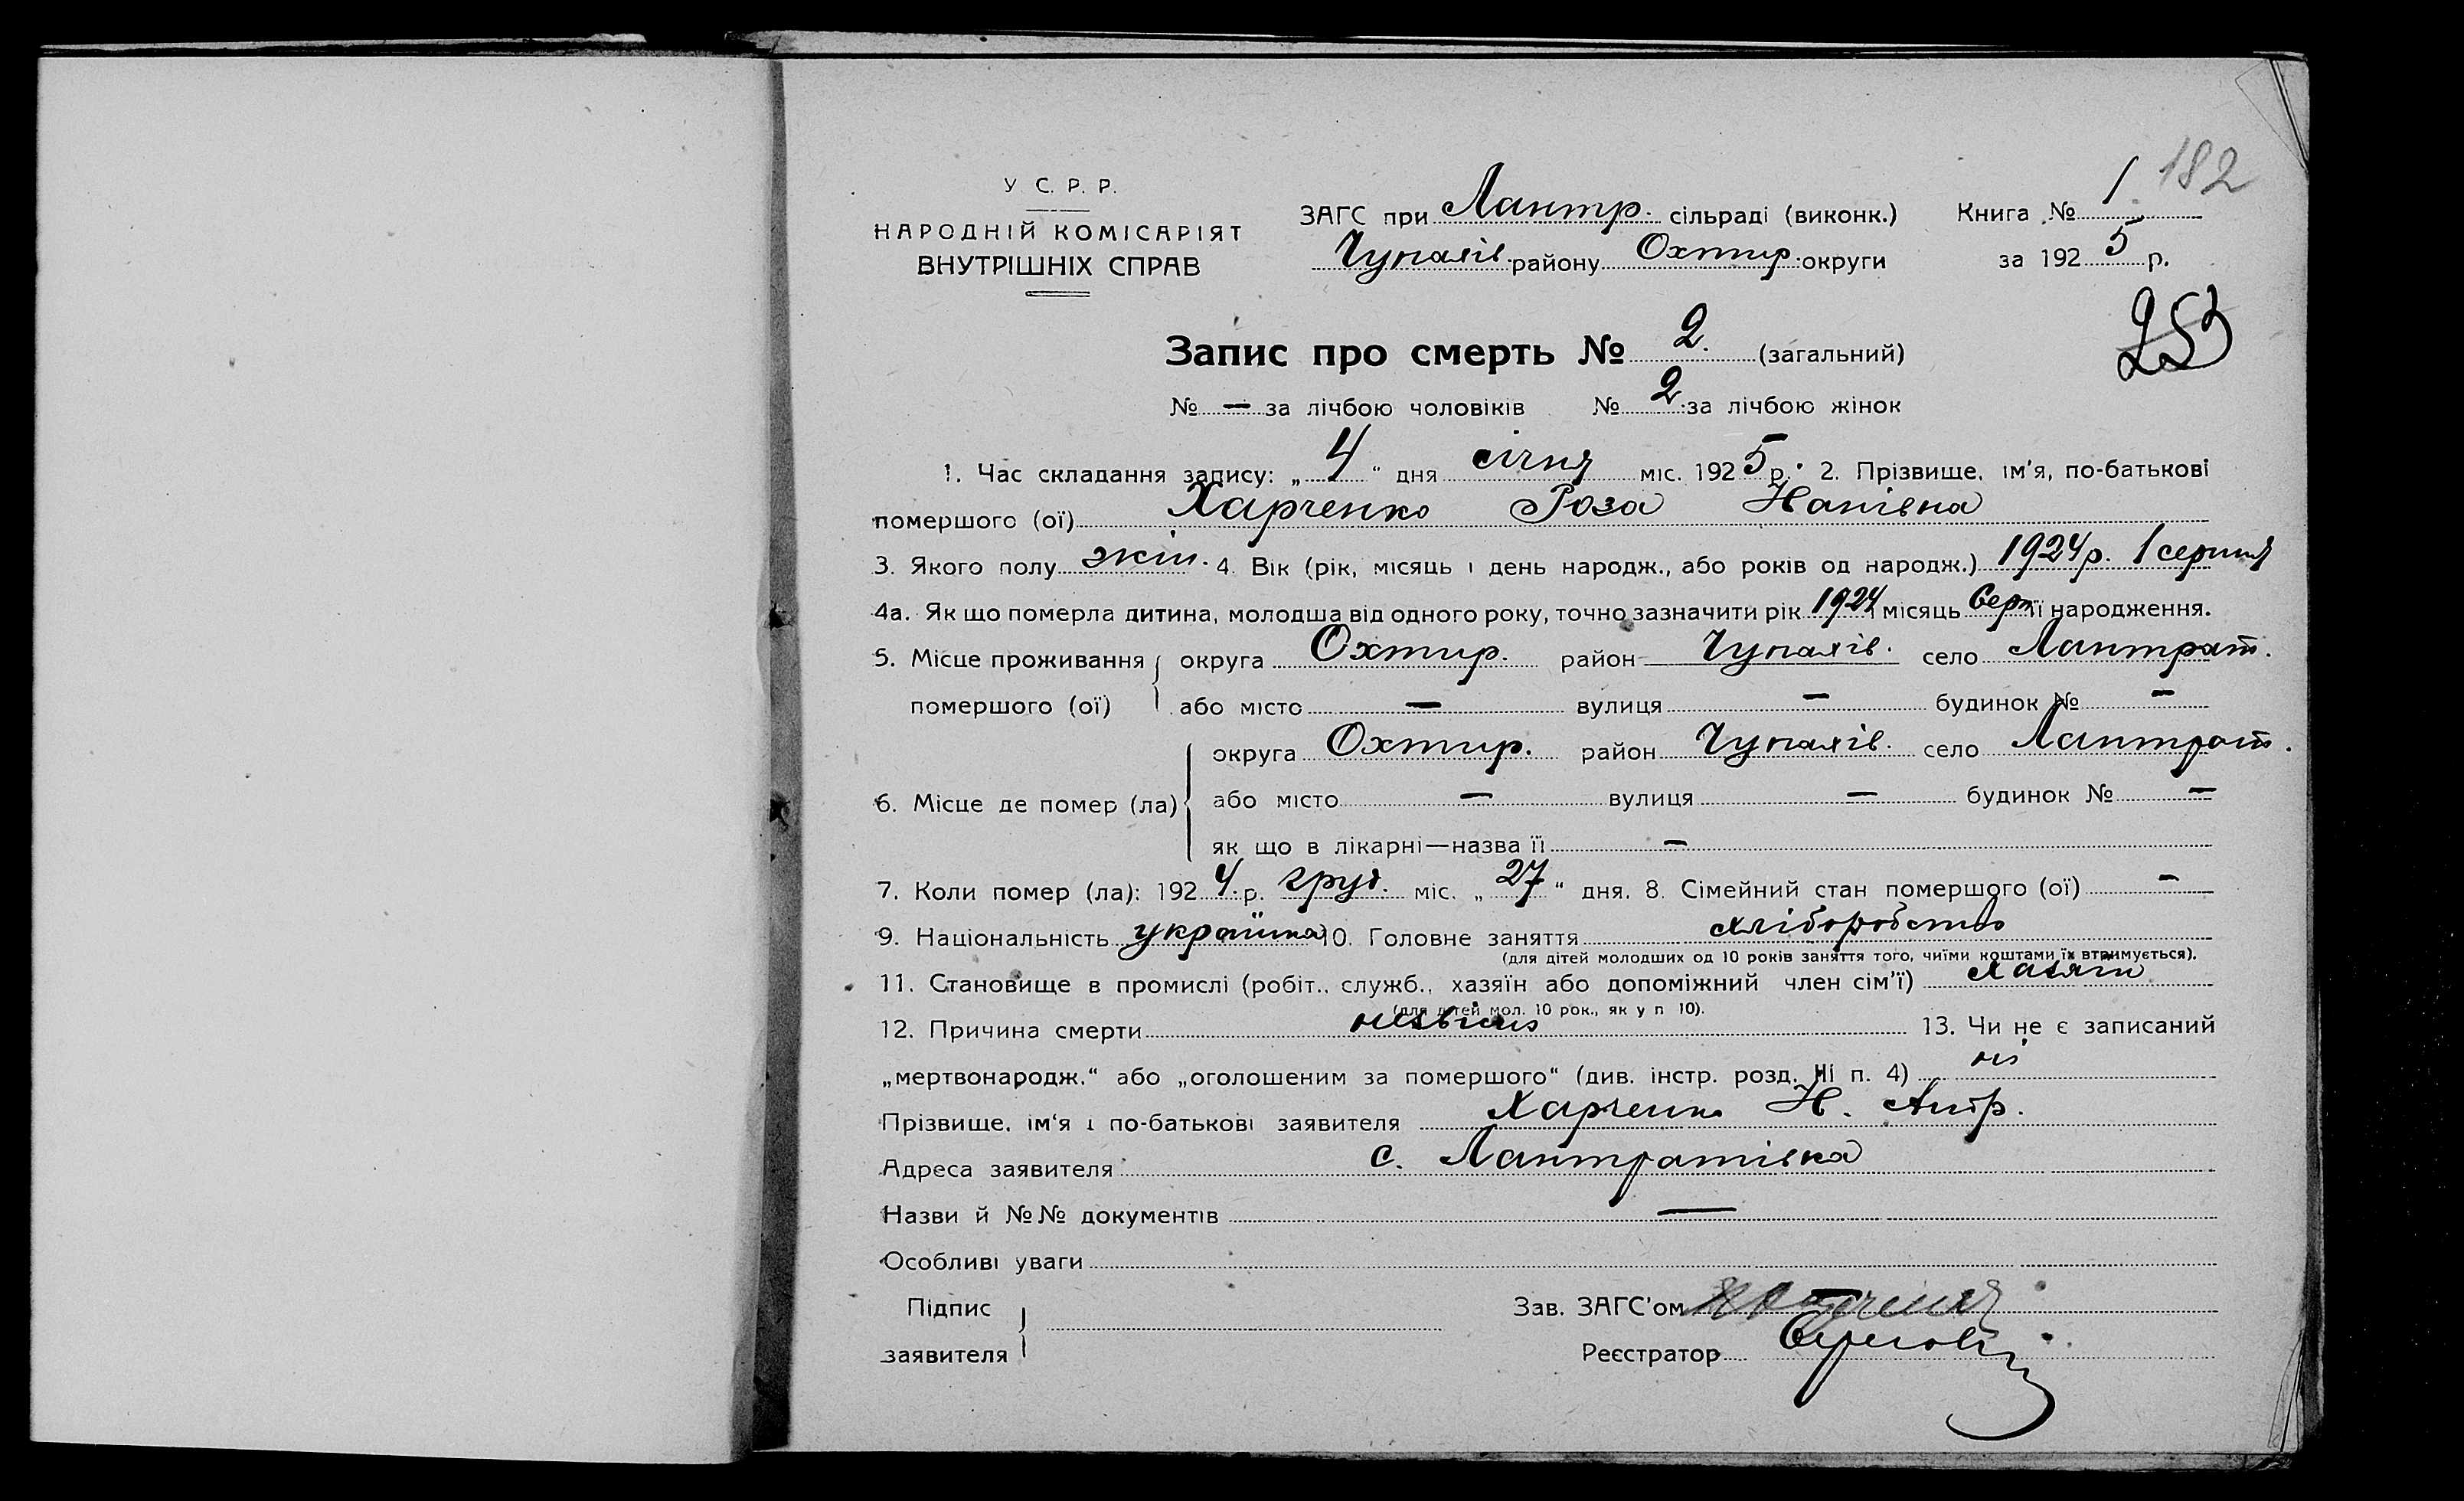 182
У С. Р. Р.
НАРОДНІЙ КОМІСАРІЯТ
ВНУТРІШНІХ СПРАВ
ЗАГС при Лантр. сільраді (виконк.) Книга № 1.
Чупахів. району Охтир. округи за 1925 р.
253
Запис про смерть № 2. (загальний)
№ — за лічбою чоловіків № 2. за лічбою жінок
1. Час складання запису: „ 4 “ дня січня міс. 1925 р. 2. Прізвище, ім'я, по-батькові
помершого (ої) Харченко Роза
3. Якого полу жін. 4. Вік (рік, місяць і день народж., або років од народж.) 1924 р. 1 серпня
4а. Як що померла дитина, молодша від одного року, точно зазначити рік 1924 і місяць Серп її народження.
5. Місце проживання округа Охтир. район Чупахів. село Лантрат.
помершого (ої) або місто — вулиця — будинок № —
округа Охтир. район Чупахів. село Лантрат.
6. Місце де помер (ла) або місто — вулиця — будинок № —
як що в лікарні—назва її —
7. Коли помер (ла): 1924. р. груд. міс. „ 27 “ дня. 8. Сімейний стан помершого (ої) —
9. Національність українка 10. Головне заняття хліборобство
(для дітей молодших од 10 років заняття того, чиїми коштами їх втримується).
11. Становище в промислі (робіт., служб., хазяїн або допоміжний член сім'ї) хазяїн
(для дітей мол. 10 рок., як у п 10).
12. Причина смерти 13. Чи не є записаний
„мертвонародж.“ або „оголошеним за помершого“ (див. інстр. розд. ІІІ п. 4) ні
Прізвище, ім'я і по-батькові заявителя Харченко Н. Андр.
Адреса заявителя с. Лантратівка
Назви й №№ документів —
Особливі уваги
Підпис
заявителя
Зав. ЗАГС'ом
Реєстратор